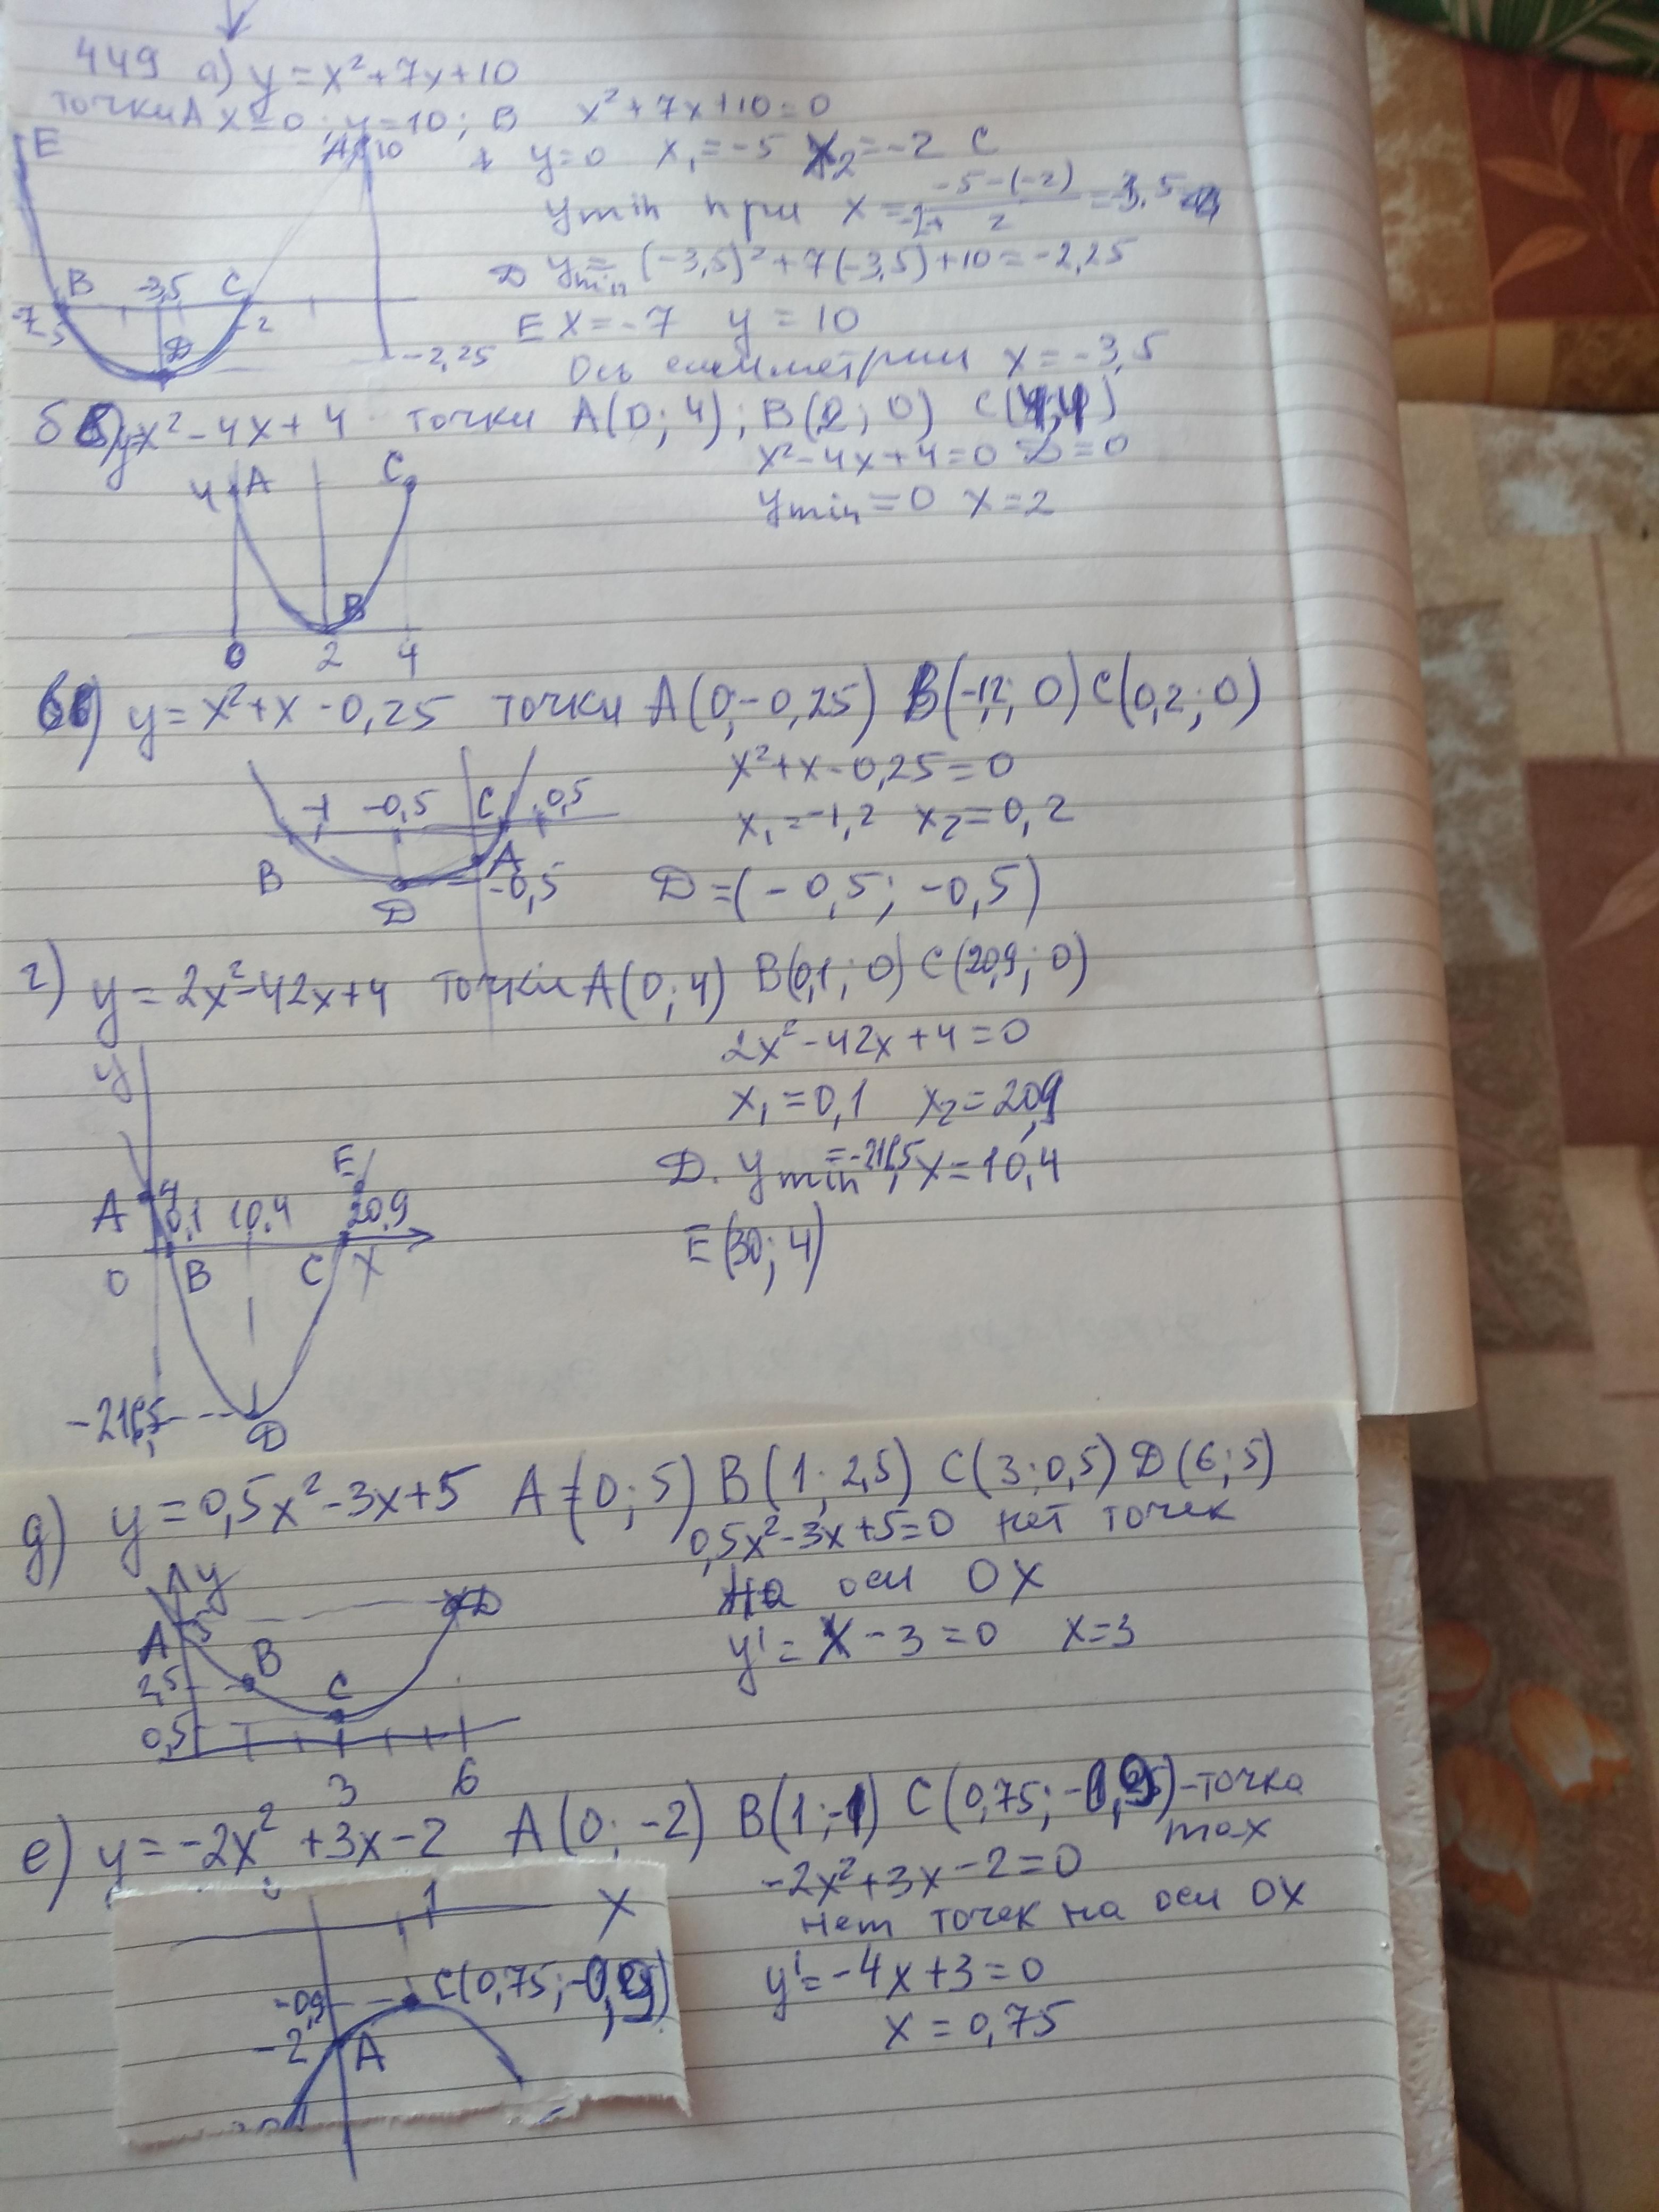 449 а) y = x² + 7x + 10
точки A x = 0; y = 10; B x² + 7x + 10 = 0
y = 0 x₁ = -5 x₂ = -2 C
E
A 10
ymin при x =
B -3,5 C
-7 -5 -2
D
-2,25
D ymin = (-3,5)² + 7(-3,5) + 10 = -2,25
E x = -7 y = 10
Ось симметрии x = -3,5
б) y = x² - 4x + 4 точки A(0; 4); B(2; 0) C(4; 4)
x² - 4x + 4 = 0 D = 0
ymin = 0 x = 2
4 A C
B
0 2 4
в) y = x² + x - 0,25 точки A(0; -0,25) B(-1,2; 0) C(0,2; 0)
x² + x - 0,25 = 0
x₁ = -1,2 x₂ = 0,2
-1 -0,5 C 0,5
B A
D -0,5
D = (-0,5; -0,5)
г) y = 2x² - 42x + 4 точки A(0; 4) B(0,1; 0) C(20,9; 0)
2x² - 42x + 4 = 0
x₁ = 0,1 x₂ = 20,9
D. ymin = -216,5; x = 10,4
E(30; 4)
y
E
A 4 0,1 10,4 20,9
0 B C X
-216,5 D
д) y = 0,5x² - 3x + 5 A = (0; 5) B(1; 2,5) C(3; 0,5) D(6; 5)
0,5x² - 3x + 5 = 0 нет точек
на оси OX
y' = x - 3 = 0 x = 3
y
A 5 D
B
2,5 C
0,5
3 6
е) y = -2x² + 3x - 2 A(0; -2) B(1; -1) C(0,75; ) - точка
max
-2x² + 3x - 2 = 0
Нет точек на оси OX
y' = -4x + 3 = 0
x = 0,75
1 X
C(0,75; -0,9)
-0,9
-2 A